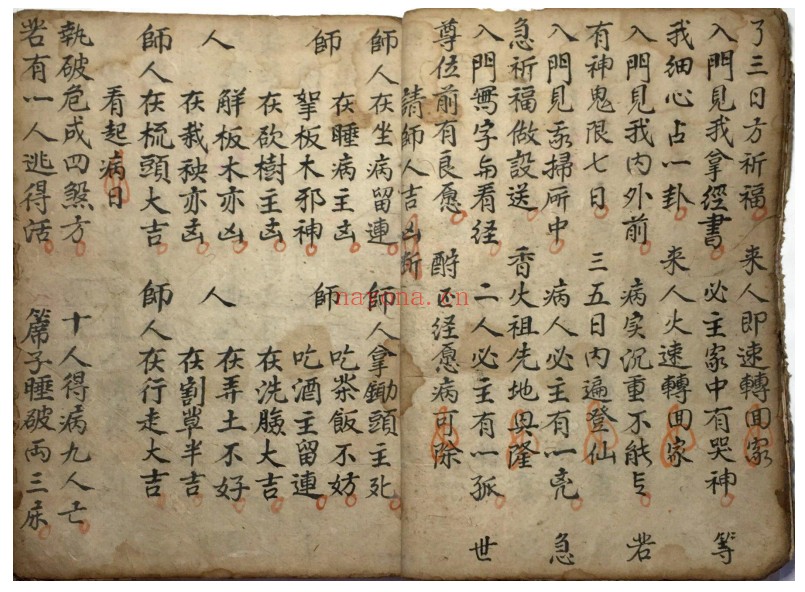 了三日方祈福 来人即速轉回家
入門見我拿經書 必主家中有哭神 等
我细心占一卦 来人火速轉回家
入門見我内外前 病実沉重不能言 若
有神鬼限七日 三五日内遍登仙
入門見我掃所中 病人必主有一凶 急
急祈福做設送 香火祖先地興隆
入門無字向看経 二人必主有一孤 世
尊位前有良愿 酧还経愿病可除
請師人吉凶断
師人在坐病留連 師人拿鋤頭主死
在睡病主凶 吃茶飯不妨
師 拏板木邪神 師 吃酒主留連
在砍樹主凶 在洗臉大吉
人 觧板木亦凶 人 在弄土不好
在栽秧亦凶 在割草半吉
師人在梳頭大吉 師人在行走大吉
看起病日
執破危成四煞方 十人得病九人亡
若有一人逃得活 蓆子睡破両三床
nayona.cn